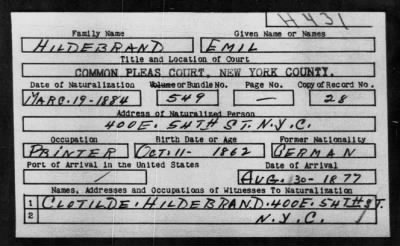 H431
Family Name Given Name or Names
HILDEBRAND EMIL
Title and Location of Court
COMMON PLEAS COURT, NEW YORK COUNTY.
Date of Naturalization Volume or Bundle No. Page No. Copy of Record No.
MARC. 19-1884 549 — 28
Address of Naturalized Person
400 E. 54TH ST. N.Y.C.
Occupation Birth Date or Age Former Nationality
PRINTER OCT. 11- 1862 GERMAN
Port of Arrival in the United States Date of Arrival
/ AUG. 30-1877
Names, Addresses and Occupations of Witnesses To Naturalization
1 CLOTILDE. HILDEBRAND. 400 E. 54TH ST.
2 N.Y.C.